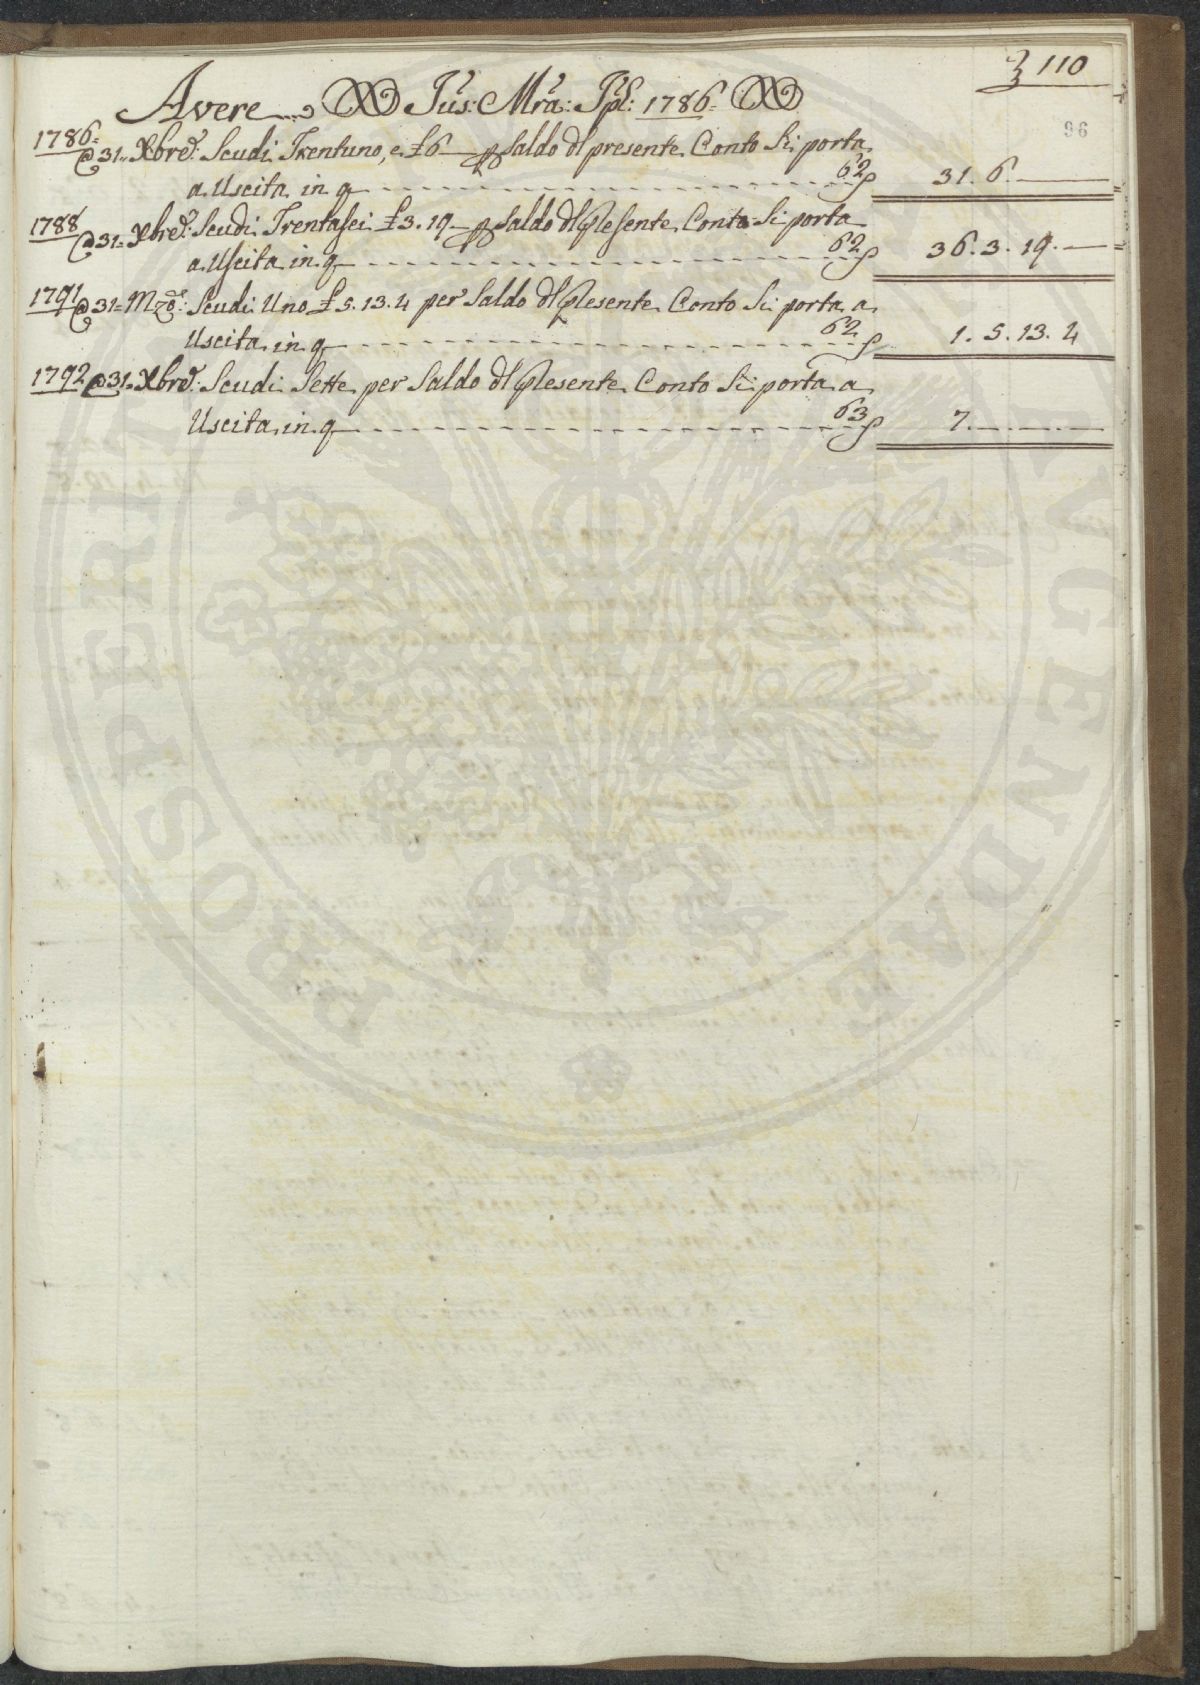 110
96
Avere Jus: Mra: Tpl: 1786
1786 @ 31 Xbre: Scudi Trentuno, e £6 — p Saldo dl presente Conto Si porta
a Uscita in q 62 31. 6. —
1788 @ 31 Xbre: Scudi Trentasei £3. 19 — p Saldo dl presente Conto Si porta
a Uscita in q 62 36. 3. 19. —
1791 @ 31 Mzo: Scudi Uno £5. 13. 4 per Saldo dl presente Conto Si porta a
Uscita in q 62 1. 5. 13. 4
1792 @ 31 Xbre: Scudi Sette per Saldo dl presente Conto Si porta a
Uscita in q 63 7. —
PROSPERITATI AVGENDAE